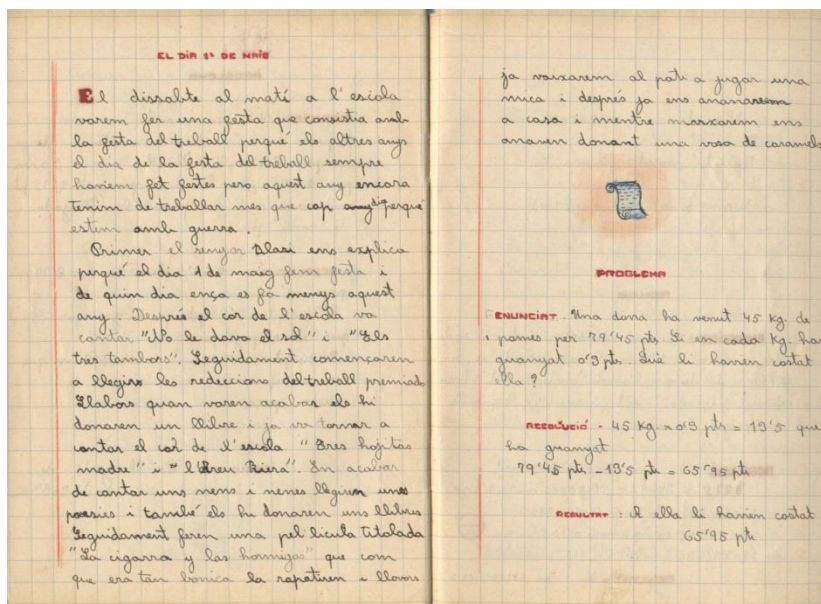 EL DIA 1r DE MAIG
El dissabte al matí a l'escola
varem fer una festa que consistia amb
la festa del treball perqué els altres anys
el dia de la festa del treball sempre
haviem fet festes pero aquest any encara
tenim de treballar mes que cap any dia perque
estem amb guerra.
Primer el senyor Blasi ens explica
perqué el dia 1 de maig fem festa i
de quin dia ença es fa menys aquest
any. Després el cor de l'escola va
cantar "No le dava el sol" i "Els
tres tambors". Seguidament començaren
a llegir les redeccions del treball premiades
Llabors quan varen acabar els hi
donaren un llibre i ja va tornar a
cantar el cor de l'escola "Tres hojitas
madre" i "l'Hreu Riera". En acabar
de cantar uns nens i nenes llegiren unes
poesies i també els hi donaren uns llibres
Seguidament feren una pel·licula titolada
"La cigarra y las hormigas" que com
que era tan bonica la rapatiren i llavors
ja vaixarem al pati a jugar una
mica i després ja ens ananarem
a casa i mentre marxarem ens
anaven donant una rosa de caramels
PROBLEMA
ENUNCIAT. Una dona ha venut 45 Kg. de
pomes per 79'45 pts. Si en cada Kg. ha
guanyat 0'3 pts. Què li havien costat
ella?
RESOLUCIÓ - 45 Kg. x 0'3 pts = 13'5 que
ha guanyat
79'45 pts - 13'5 pts = 65'95 pts
RESULTAT: A ella li havien costat
65'95 pts